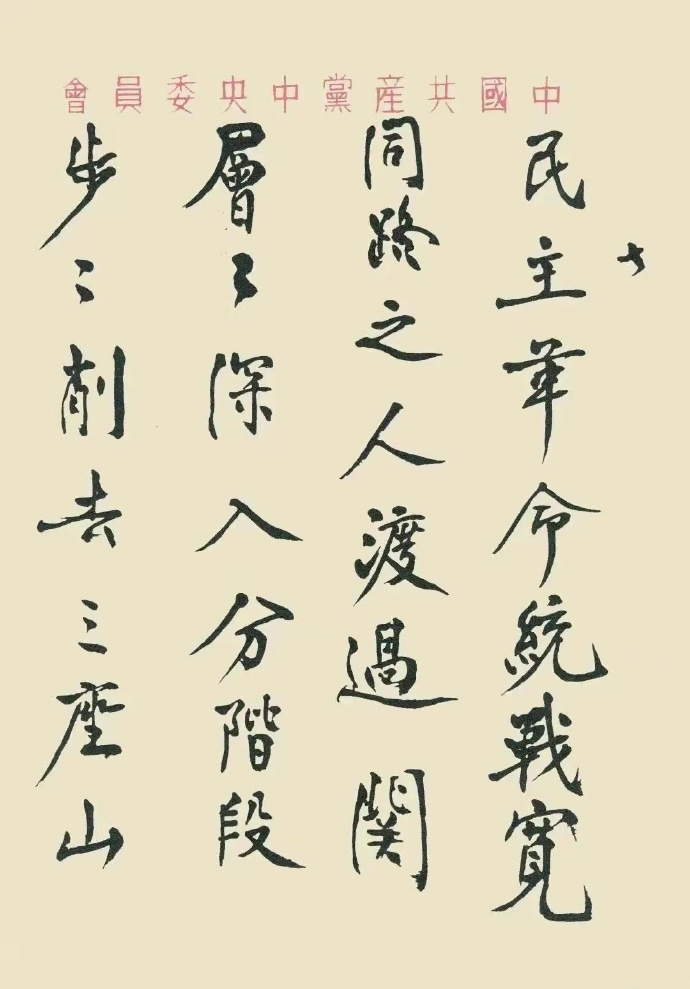 中國共産黨中央委員會
七
民主革命統戰寬
同路之人渡過関
層〻深入分階段
步〻削去三座山